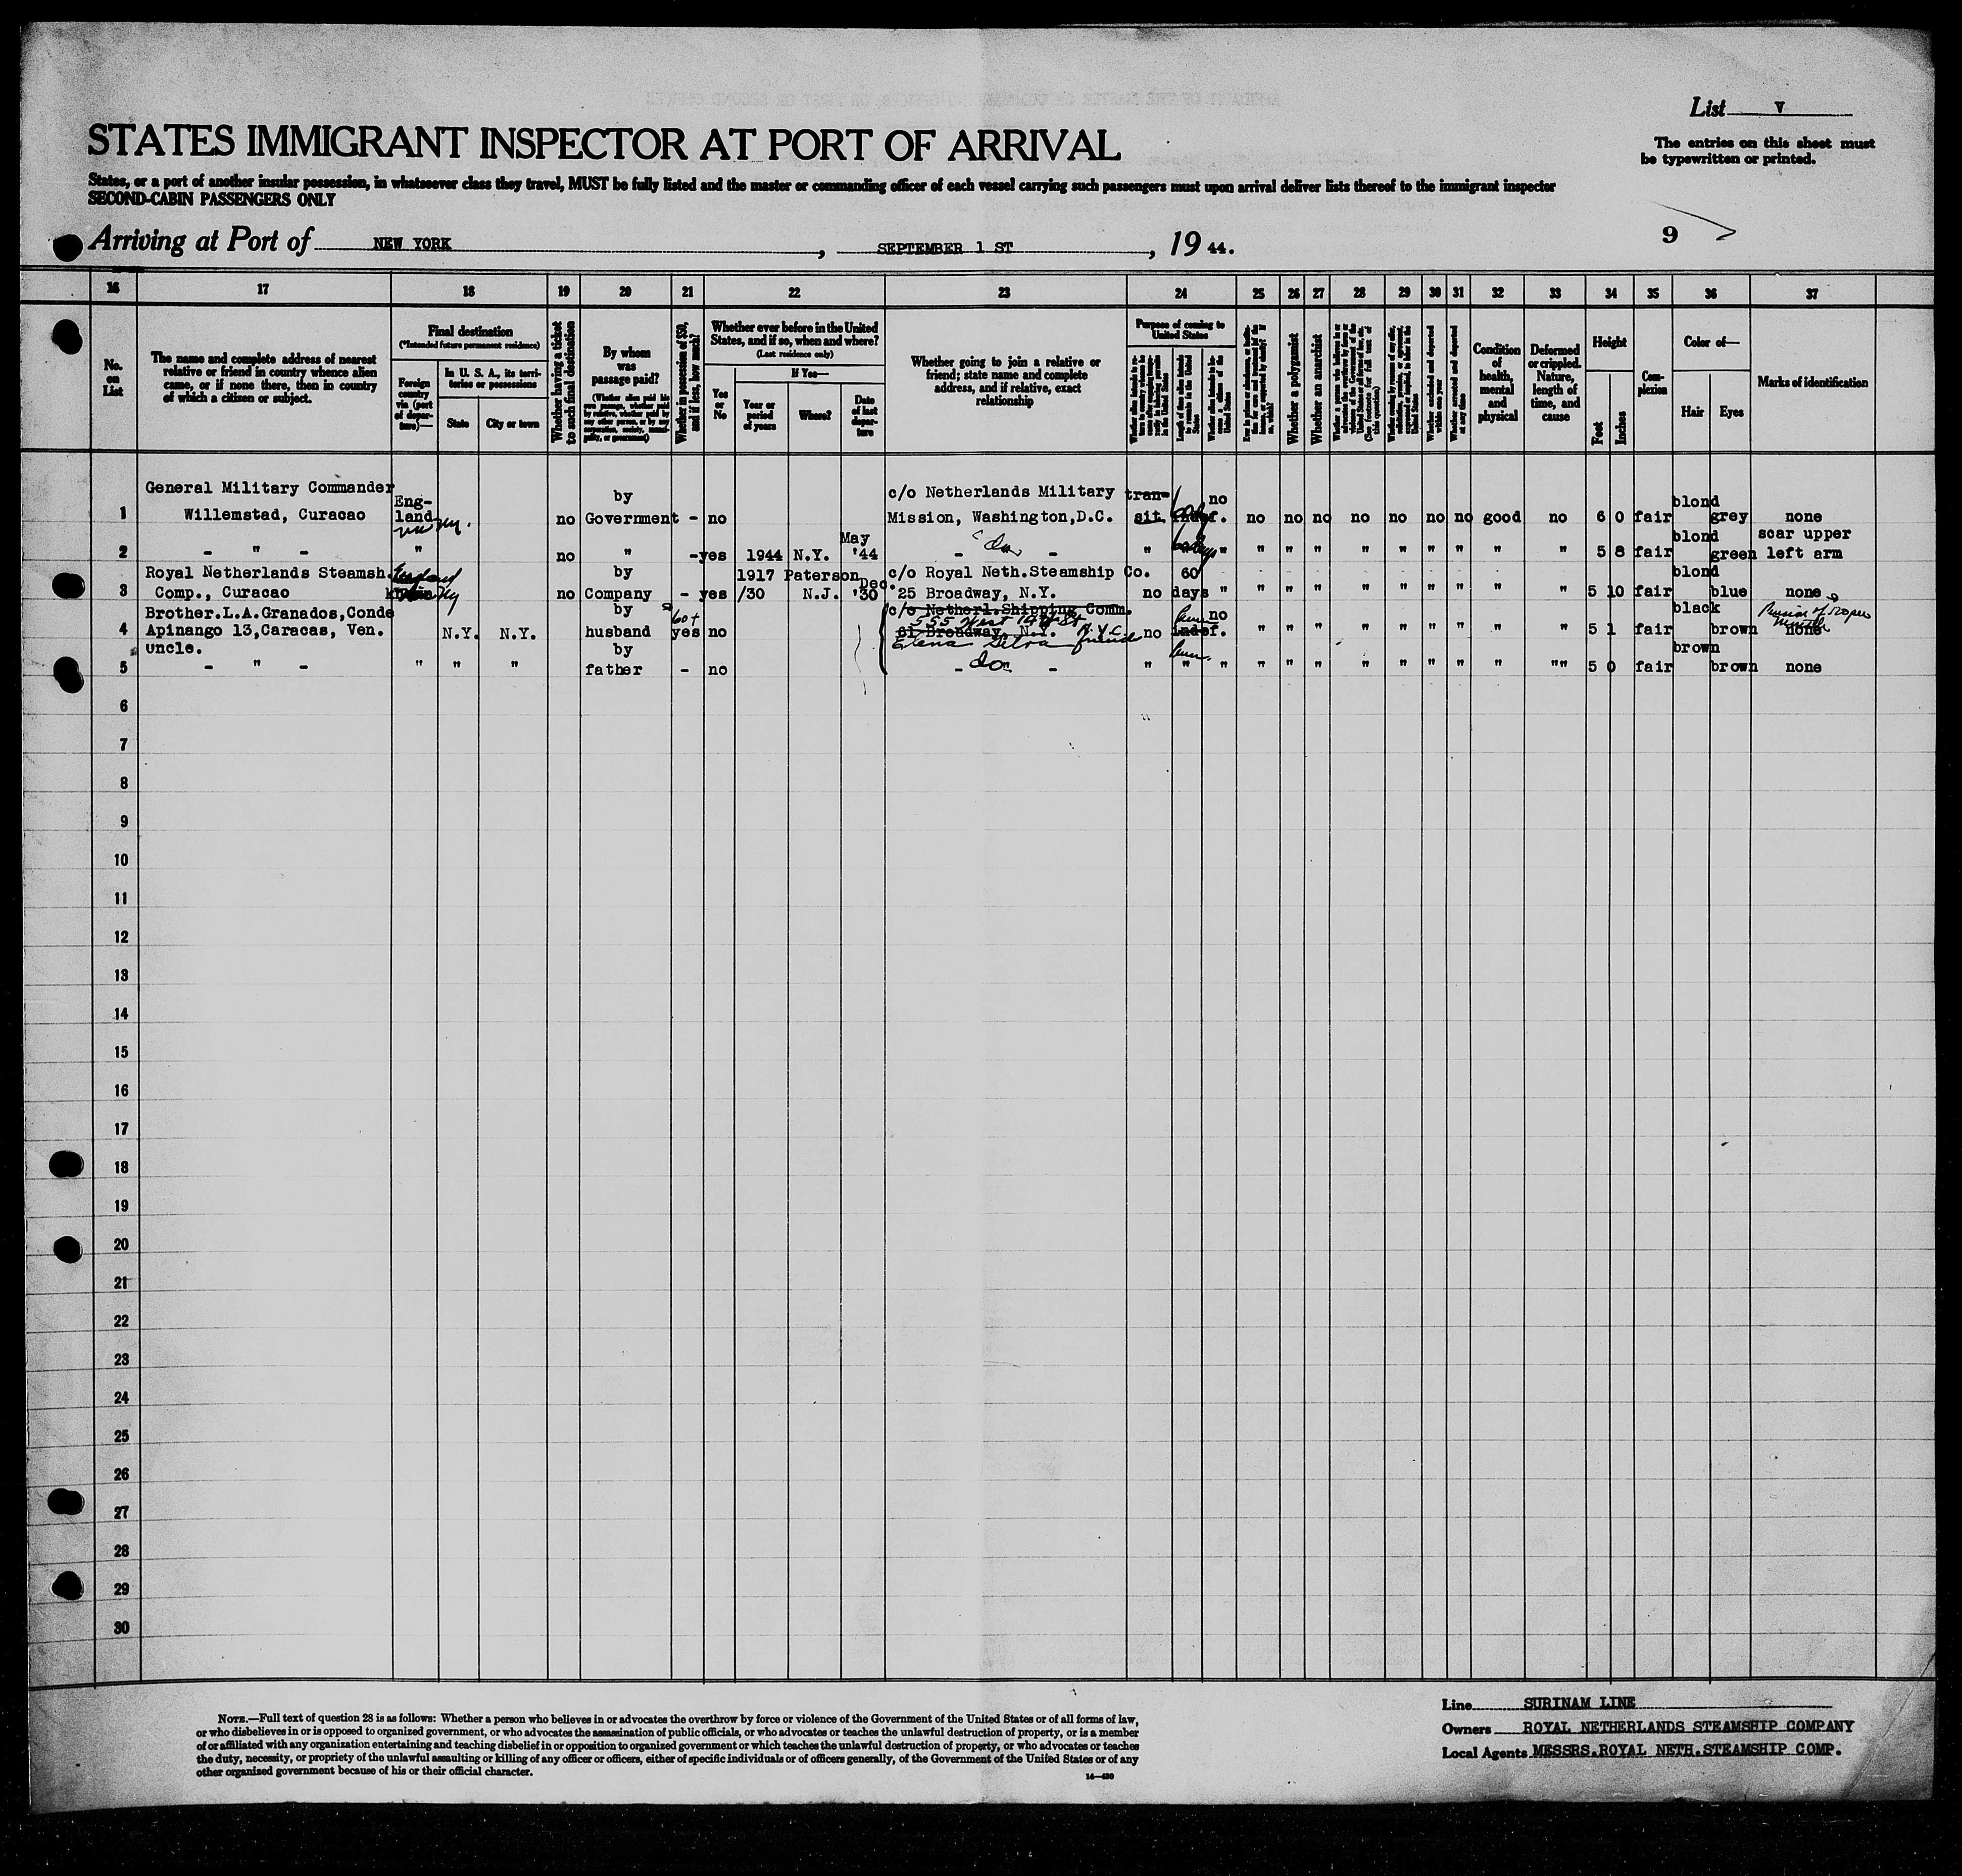 List V
The entries on this sheet must
be typewritten or printed.
STATES IMMIGRANT INSPECTOR AT PORT OF ARRIVAL
States, or a port of another insular possession, in whatsoever class they travel, MUST be fully listed and the master or commanding officer of each vessel carrying such passengers must upon arrival deliver lists thereof to the immigrant inspector
SECOND-CABIN PASSENGERS ONLY
Arriving at Port of NEW YORK, SEPTEMBER 1 ST, 19 44.
9
16 17 18 19 20 21 22 23 24 25 26 27 28 29 30 31 32 33 34 35 36 37
No.
on
List
The name and complete address of nearest
relative or friend in country whence alien
came, or if none there, then in country
of which a citizen or subject.
Final destination
(*Intended future permanent residence)
Foreign
country
via (port
of depar-
ture)—
In U. S. A., its terri-
tories or possessions
State
City or town
Whether having a ticket
to such final destination
By whom
was
passage paid?
(Whether alien paid his
own passage, whether paid
by relative, whether paid by
any other person, or by any
corporation, society, munici-
pality, or government)
Whether in possession of $50,
and if less, how much?
Whether ever before in the United
States, and if so, when and where?
(Last residence only)
If Yes—
Yes
or
No
Year or
period
of years
Where?
Date
of last
depar-
ture
Whether going to join a relative or
friend; state name and complete
address, and if relative, exact
relationship
Purpose of coming to
United States
Whether a polygamist
Whether an anarchist
Condition
of
health,
mental
and
physical
Deformed
or crippled.
Nature,
length of
time, and
cause
Height
Feet
Inches
Com-
plexion
Color of—
Hair
Eyes
Marks of identification
General Military Commander Eng- by c/o Netherlands Military tran- no blond
1 Willemstad, Curacao land no Government - no Mission, Washington,D.C. sit indef. no no no no no no no good no 6 0 fair grey none
May blond scar upper
2 - " - " no " - yes 1944 N.Y. '44 - do - " " " " " " " " " " " 5 8 fair green left arm
Royal Netherlands Steamsh. England by 1917 Paterson Dec. c/o Royal Neth.Steamship Co. 60 blond
3 Comp., Curacao no Company - yes /30 N.J. '30 25 Broadway, N.Y. no days " " " " " " " " " " 5 10 fair blue none
Brother.L.A.Granados,Conde by 60+ c/o Netherl.Shipping Comm. no black
555 West
4 Apinango 13,Caracas, Ven. N.Y. N.Y. husband yes no Broadway, N.Y. N.Y.C. no indef. " " " " " " " " " 5 1 fair brown none
Elena Silva friend
uncle. by brown
5 - " - " " " father - no - do - " " " " " " " " " " " "" 5 0 fair brown none
6
7
8
9
10
11
12
13
14
15
16
17
18
19
20
21
22
23
24
25
26
27
28
29
30
NOTE.—Full text of question 28 is as follows: Whether a person who believes in or advocates the overthrow by force or violence of the Government of the United States or of all forms of law,
or who disbelieves in or is opposed to organized government, or who advocates the assassination of public officials, or who advocates or teaches the unlawful destruction of property, or is a member
of or affiliated with any organization entertaining and teaching disbelief in or opposition to organized government or which teaches the unlawful destruction of property, or who advocates or teaches
the duty, necessity, or propriety of the unlawful assaulting or killing of any officer or officers, either of specific individuals or of officers generally, of the Government of the United States or of any
other organized government because of his or their official character.
14—430
Line SURINAM LINE
Owners ROYAL NETHERLANDS STEAMSHIP COMPANY
Local Agents MESSRS.ROYAL NETH.STEAMSHIP COMP.